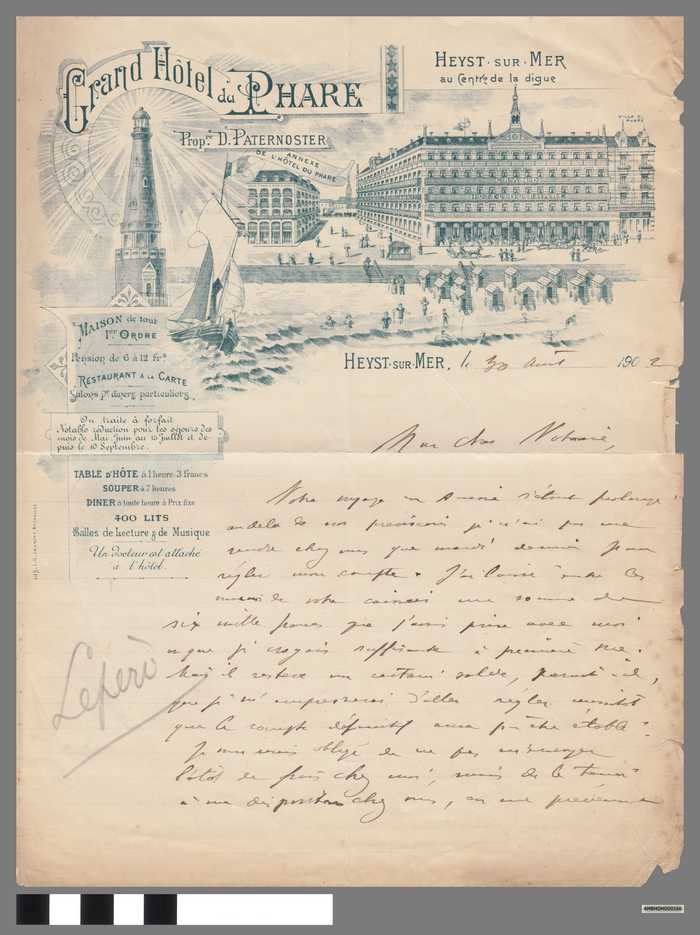 Grand Hôtel du Phare
Heyst-sur-Mer
au Centre de la digue
Propre D. Paternoster
Annexe
de l'Hôtel du Phare
Maison de tout
1er Ordre
Pension de 6 à 12 frs
Restaurant à la Carte
Salons pr diners particuliers
On traite à forfait
Notable réduction pour les séjours des
mois de Mai, Juin au 15 Juillet et de-
puis le 10 Septembre.
Table d'hôte à 1 heure 3 francs
Souper à 7 heures
Diner à toute heure à Prix fixe
400 Lits
Salles de Lecture & de Musique
Un docteur est attaché
à l'hôtel.
Heyst-sur-Mer, le 30 août 1902
Mon cher Notaire,
Notre voyage en s'étant prolongé
au delà de nos prévisions je n'ai pu me
rendre chez vous que mardi dernier pour
régler mon compte. J'ai laissé entre les
mains de votre une somme de
six mille francs que j'avais prise avec moi
et que je croyais suffisante à première vue.
Mais il restera un certain solde, paraît-il,
que je m'empresserai d'aller régler aussitôt
que le compte définitif aura pu être établi.
Je vous serais obligé de ne pas m'envoyer
l'état de frais chez moi, mais de le tenir
à ma disposition chez vous, en me prévenant
Lepero